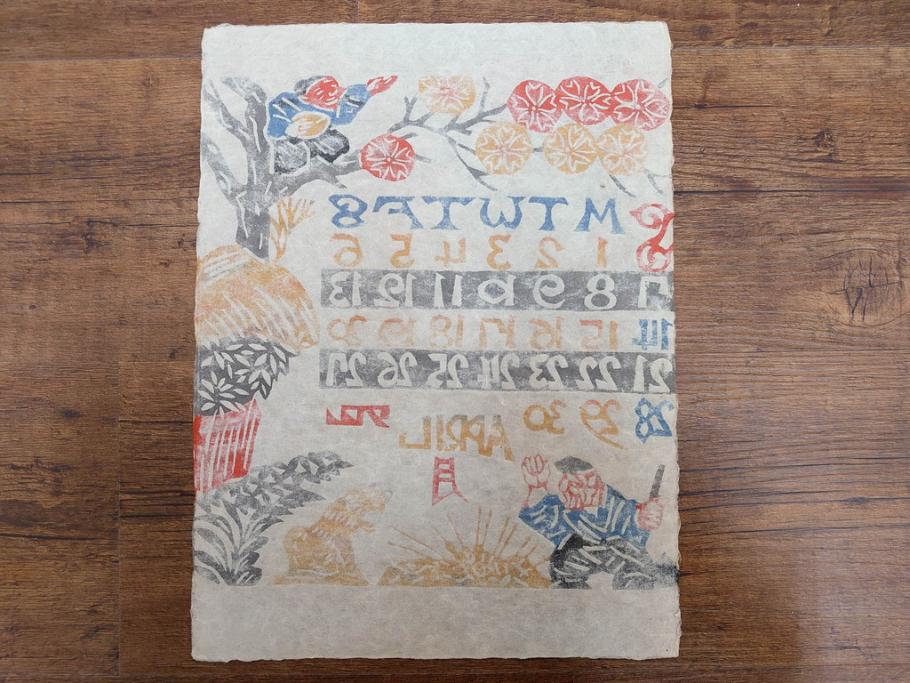 S M T W T F S
1 2 3 4 5 6
7 8 9 10 11 12 13
14 15 16 17 18 19 20
21 22 23 24 25 26 27
28 29 30
APRIL
月